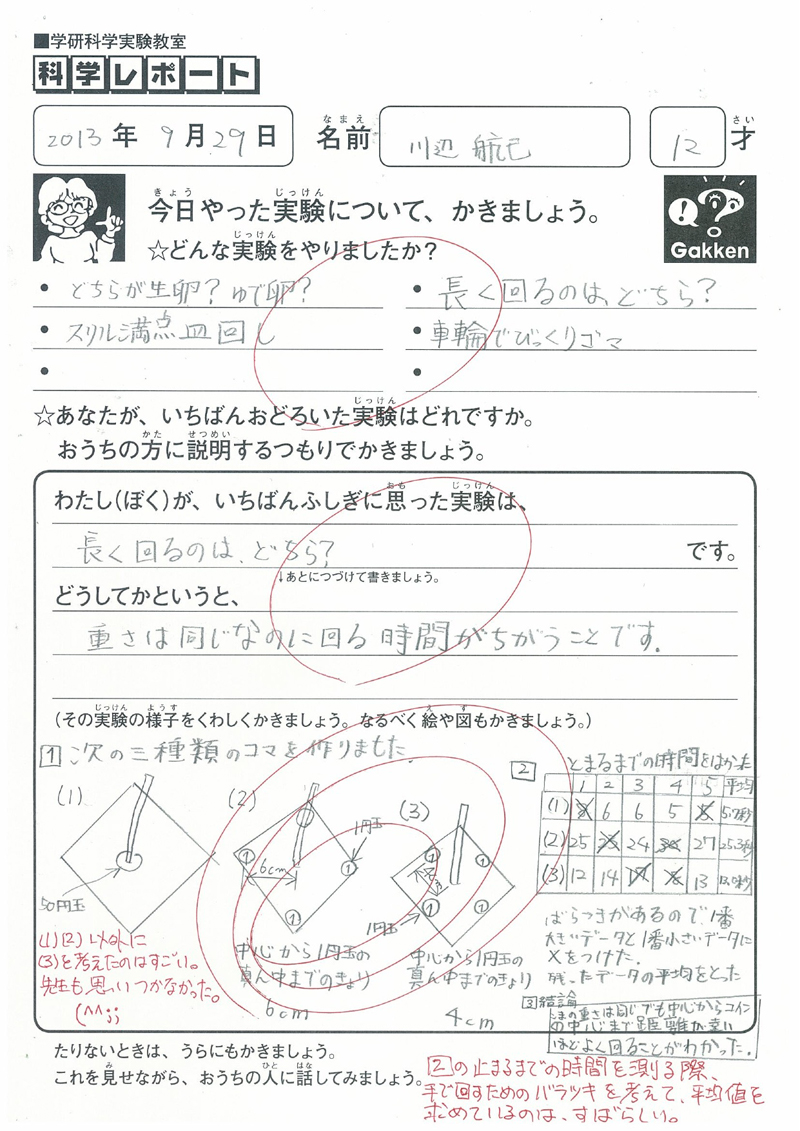 ■学研科学実験教室
科学レポート
2013年 9月29日 名前 川辺 航己 12才
なまえ さい
今日やった実験について、かきましょう。
きょう じっけん
☆どんな実験をやりましたか?
じっけん
Gakken
• どちらが生卵?ゆで卵?
• 長く回るのは、どちら?
• スリル満点皿回し
• 車輪でびっくりゴマ
•
•
☆あなたが、いちばんおどろいた実験はどれですか。
じっけん
おうちの方に説明するつもりでかきましょう。
かた せつめい
わたし(ぼく)が、いちばんふしぎに思った実験は、
おも じっけん
長く回るのは、どちら? です。
↓あとにつづけて書きましょう。
どうしてかというと、
重さは同じなのに回る時間がちがうことです.
(その実験の様子をくわしくかきましょう。なるべく絵や図もかきましょう。)
じっけん ようす え ず
1 次の三種類のコマを作りました
(1)
50円玉
(2)
6cm
1円玉
① ① ①
中心から1円玉の
真ん中までのきょり
6cm
(3)
1円玉
① ① ① ①
中心から1円玉の
真ん中までのきょり
4cm
2 とまるまでの時間をはかった
1 2 3 4 5 平均
(1) 6 6 5 5.7秒
(2) 25 24 27 25.3秒
(3) 12 14 13 13.0秒
ばらつきがあるので、1番
大きいデータと1番小さいデータに
×をつけた.
残ったデータの平均をとった
3 結論
こまの重さは同じでも中心からコイン
の中心まで距離が長い
ほどよく回ることがわかった.
(1)(2)以外に
(3)を考えたのはすごい。
先生も思いつかなかった。
(^^;;
たりないときは、うらにもかきましょう。
これを見せながら、おうちの人に話してみましょう。
み ひと はな
2の止まるまでの時間を測る際、
手で回すためのバラツキを考えて、平均値を
求めているのは、すばらしい。